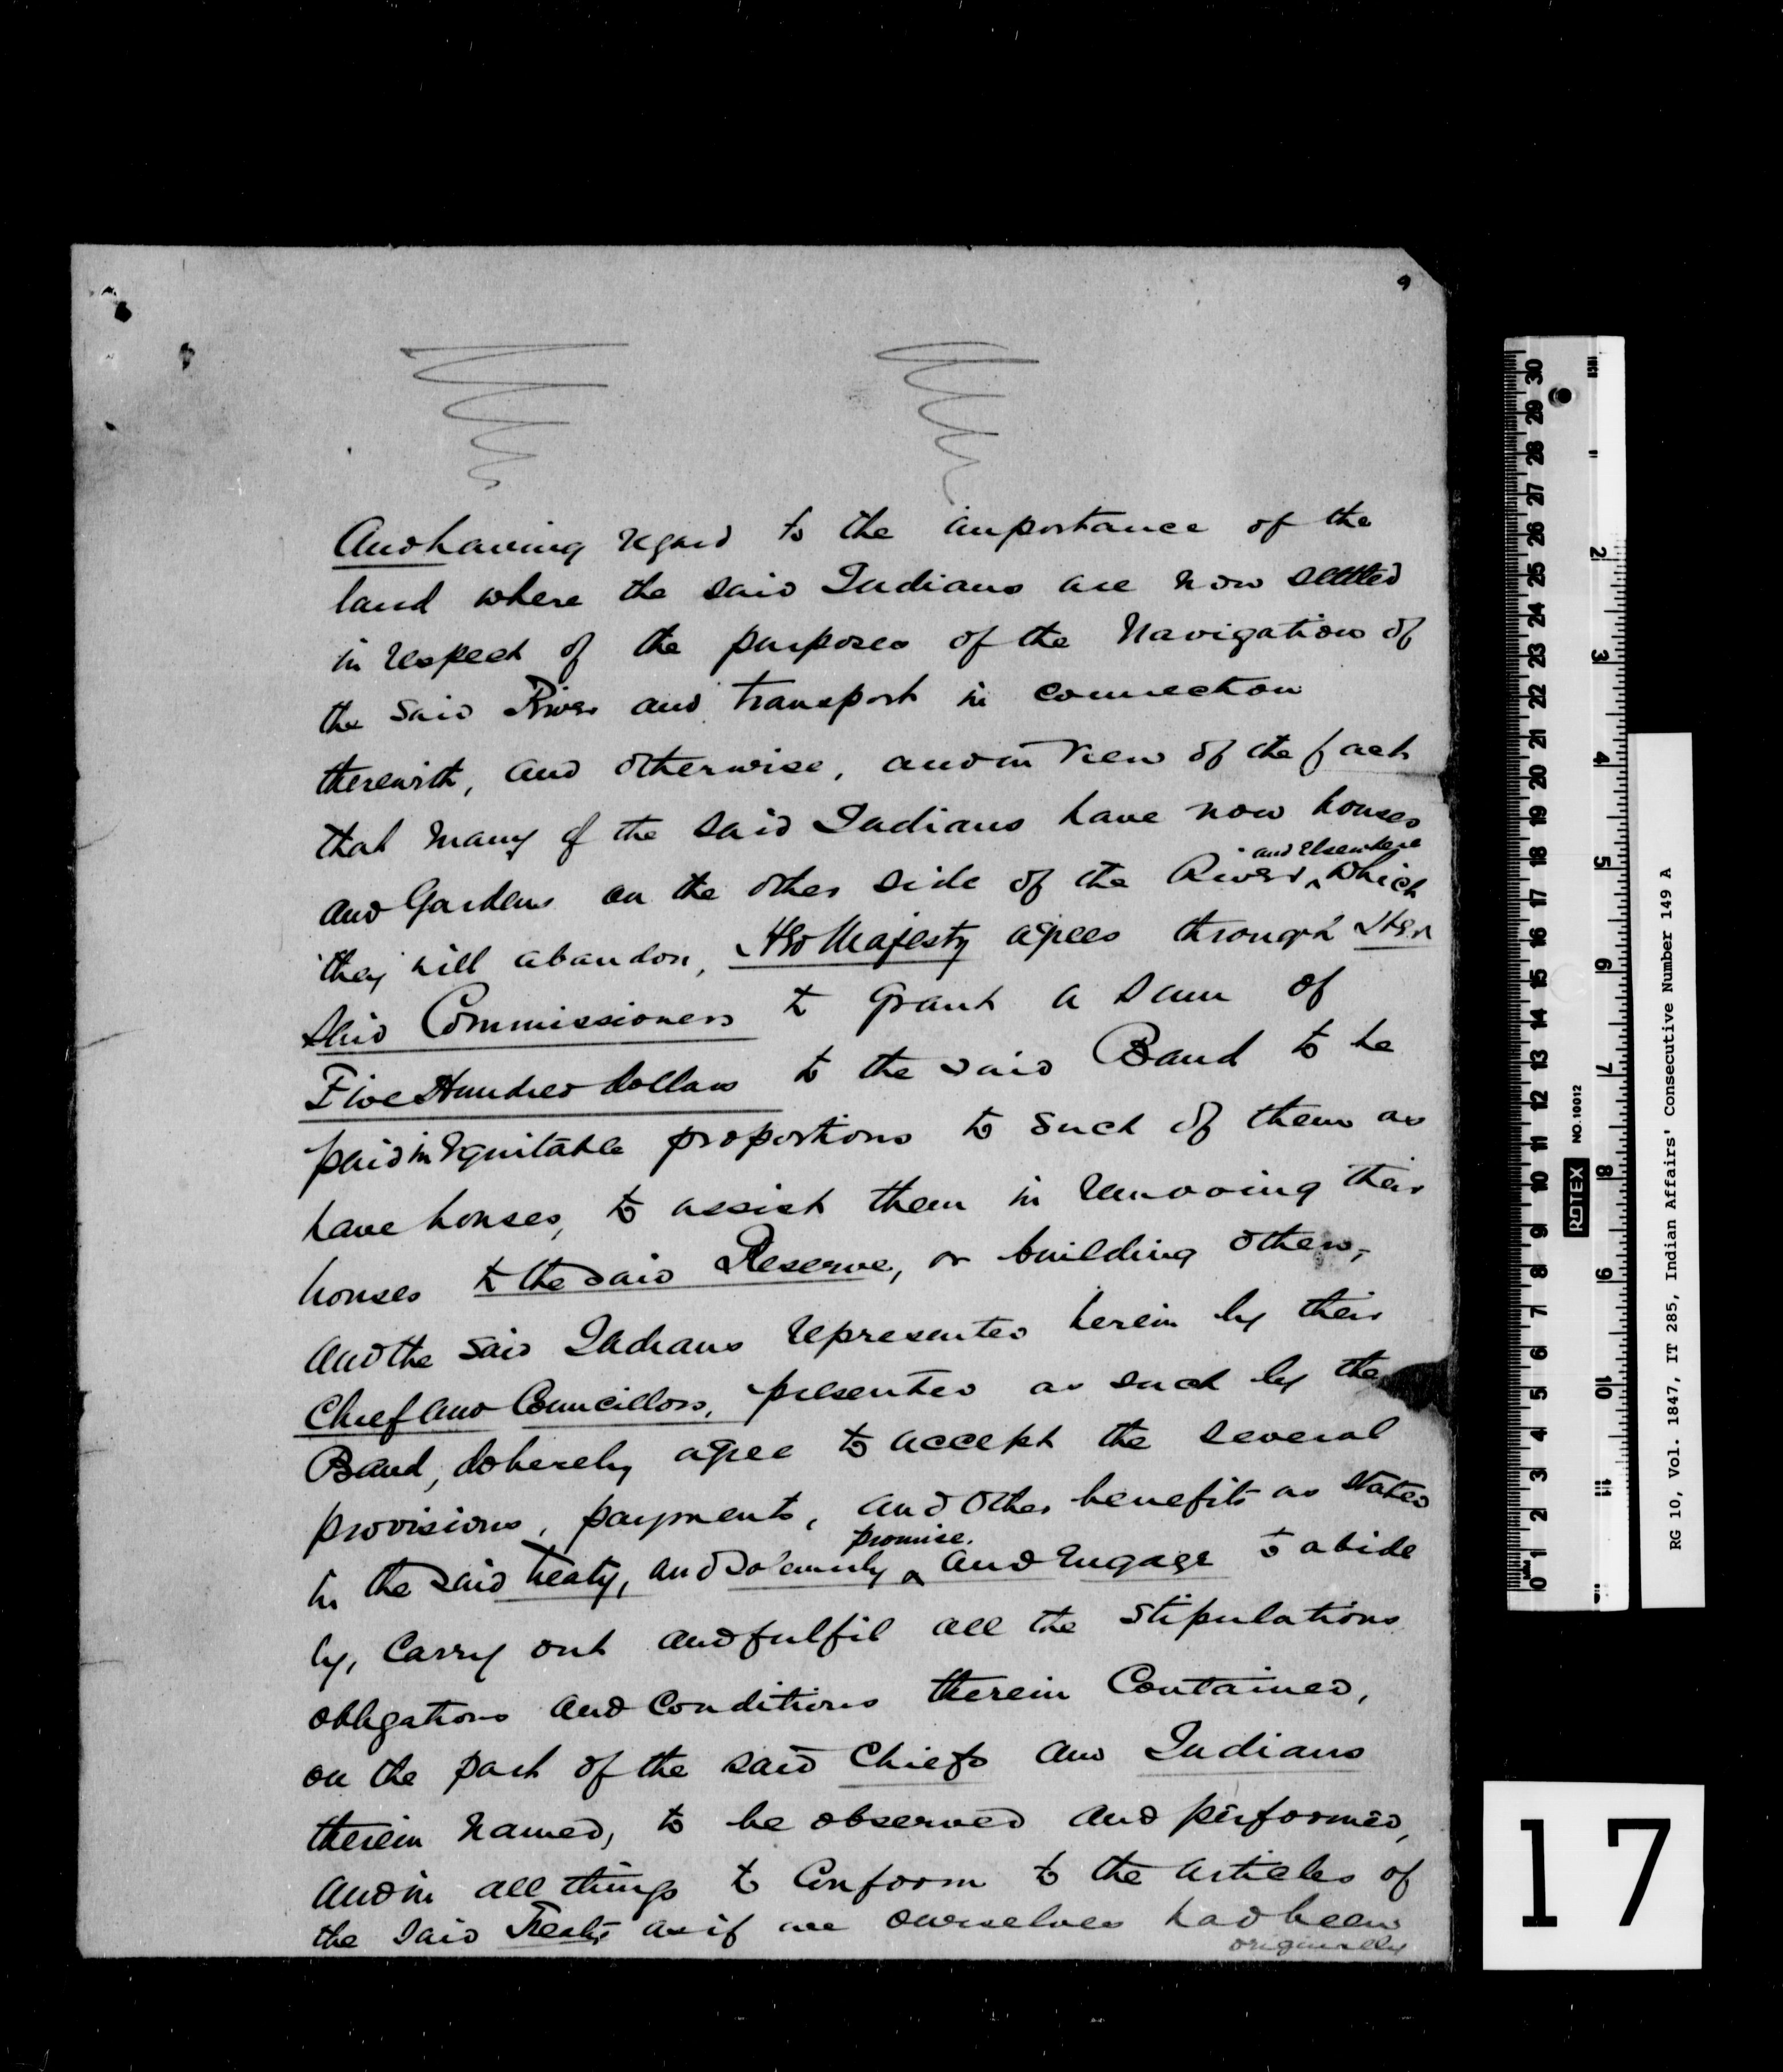 9
And having regard to the importance of the
land where the said Indians are now settled
in respect of the purposes of the Navigation of
the said River and transport in connection
therewith, and otherwise, and in view of the fact
that many of the said Indians have now houses
and Elsewhere
and Gardens on the other side of the River, which
they will abandon, Her Majesty agrees through Her
said Commissioners to grant a sum of
Five Hundred dollars to the said Band to be
paid in Equitable proportions to such of them as
have houses, to assist them in removing their
houses to the said Reserve, or building others,
And the said Indians represented herein by their
Chief and Councillors, presented as such by the
Band, do hereby agree to accept the several
provisions, payments, and other benefits as stated
promise.
in the said treaty, and solemnly and Engage to abide
by, Carry out and fulfil all the stipulations
obligations and Conditions therein Contained,
on the part of the said Chiefs and Indians
therein Named, to be observed and performed,
and in all things to Conform to the articles of
the said Treaty as if we ourselves had been
originally
RG 10, Vol. 1847, IT 285, Indian Affairs' Consecutive Number 149 A
ROTEX NO. 10012
30 29 28 27 26 25 24 23 22 21 20 19 18 17 16 15 14 13 12 11 10 9 8 7 6 5 4 3 2 1 0
2 3 4 5 6 7 8 9 10 11
17